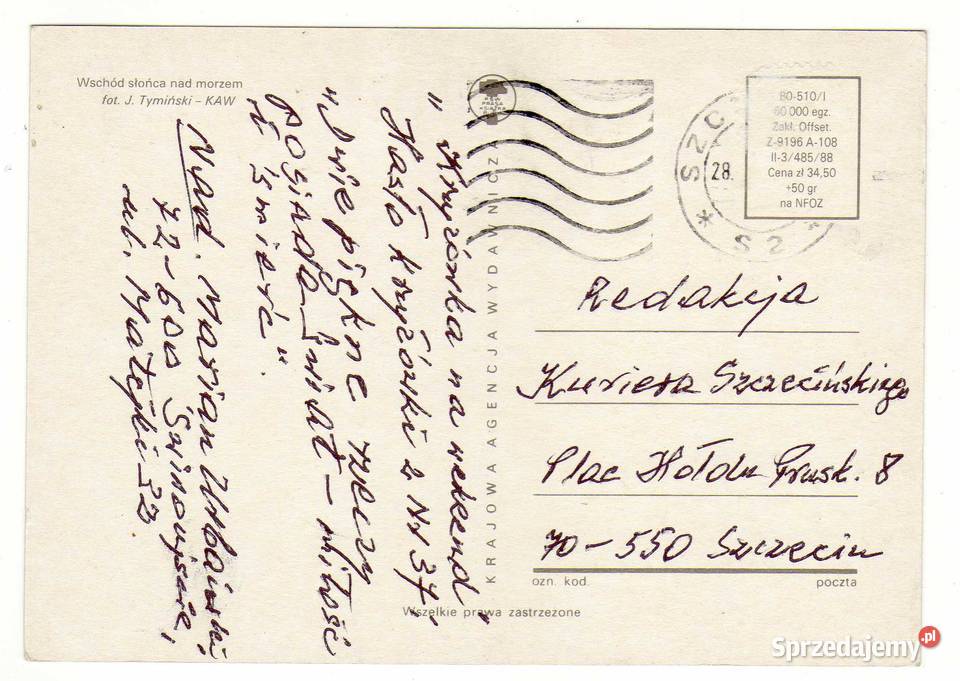 Wschód słońca nad morzem
fot. J. Tymiński – KAW
"Krzyżówka na weekend"
Hasło krzyżówki z Nr 37"
"Dwie piękne rzeczy
posiada świat – miłość
i śmierć".
Nad. Marian Urbański
72-600 Świnoujście,
ul. Matejki
KRAJOWA AGENCJA WYDAWNICZA
RSW
PRASA
KSIĄŻKA
RUCH
SZC
28.
* S2 *
80-510/I
60 000 egz.
Zakł. Offset.
Z-9196 A-108
II-3/485/88
Cena zł 34,50
+50 gr
na NFOZ
Redakcja
Kuriera Szczecińskiego
Plac Hołdu Prusk. 8
70-550 Szczecin
ozn. kod. poczta
Wszelkie prawa zastrzeżone
Sprzedajemy.pl